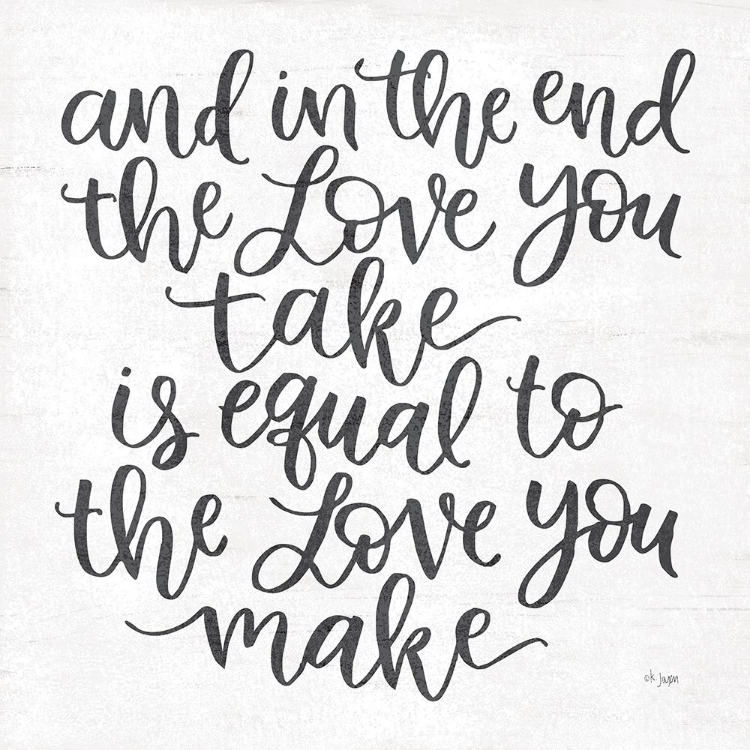 and in the end
the Love you
take
is equal to
the Love you
make
©K. Jaxon